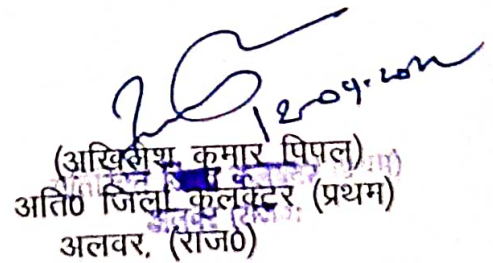 12-04-2022
(अखिलेश कुमार पिपल)
अति0 जिला कलक्टर (प्रथम)
अलवर, (राज0)